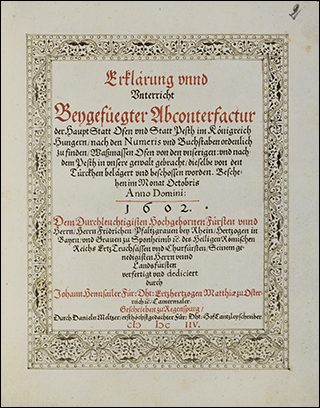 Erklärung vnnd
Vnterricht
Beygefüegter Abconterfactur
der Haupt Statt Ofen vnd Statt Pesth im Königreich
Hungern / nach den Numeris vnd Buchstaben ordenlich
zu finden / Waßmassen Ofen von den vnserigen: vnd nach
dem Pesth in vnsere gewalt gebracht: dieselbe von den
Türckhen belägert vnd beschossen worden. Besche-
hen im Monat Octobris
Anno Domini:
1602.
Dem Durchleuchtigisten Hochgebornen Fürsten vnnd
Herrn / Herrn Fridrichen Pfaltzgrauen bey Rhein / Hertzogen in
Bayrn / vnd Grauen zu Sponheimb &c. des Heiligen Römischen
Reichs Ertz Truchsässen vnd Churfürsten / Seinem ge-
nedigisten Herrn vnnd
Landsfürsten
verfertigt vnd dediciert
durch
Johann Für: Dht: Ertzhertzogen Matthiæ zu Oster-
rich &c. Camermaler.
Geschrieben zu Regenspurg /
Durch Danieln Meltzer / ersthöchstgedachter Für: Dht: Hof Cantzleyschreiber